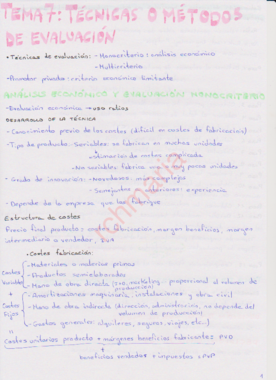 TEMA 7: TÉCNICAS O MÉTODOS
DE EVALUACIÓN
• Técnicas de evaluación: - Monocriterio: análisis económico
- Multicriterio
• Prevalor prueba: criterio económico limitante
ANÁLISIS ECONÓMICO Y EVALUACIÓN MONOCRITERIO
- Evaluación económica → uso ratios
DESARROLLO DE LA TÉCNICA
- Conocimiento previo de los costes (difícil en costes de fabricación)
- Tipo de producto: Seriables: se fabrican en muchas unidades
estimación de costes complicada
No seriables: fabrica en pocas unidades
- Grado de innovación: - Novedosos: más complejos
- Semejantes a anteriores: experiencia
- Depende de la empresa que los fabrique
Estructura de costes
Precio final producto: costes fabricación, margen beneficios, margen
intermediario o vendedor, IVA
• Costes fabricación:
Costes Variables
- Materiales o materias primas
- Productos semielaborados
- Mano de obra directa (proporcional al volumen de
producción)
Costes Fijos
- Amortizaciones maquinaria, instalaciones y obra civil
- Mano de obra indirecta (dirección, administración, no depende del
volumen de producción)
- Gastos generales: alquileres, seguros, viajes, etc..)
Costes unitarios producto + márgenes beneficios fabricante: PVD
beneficios vendedor + impuestos: PVP